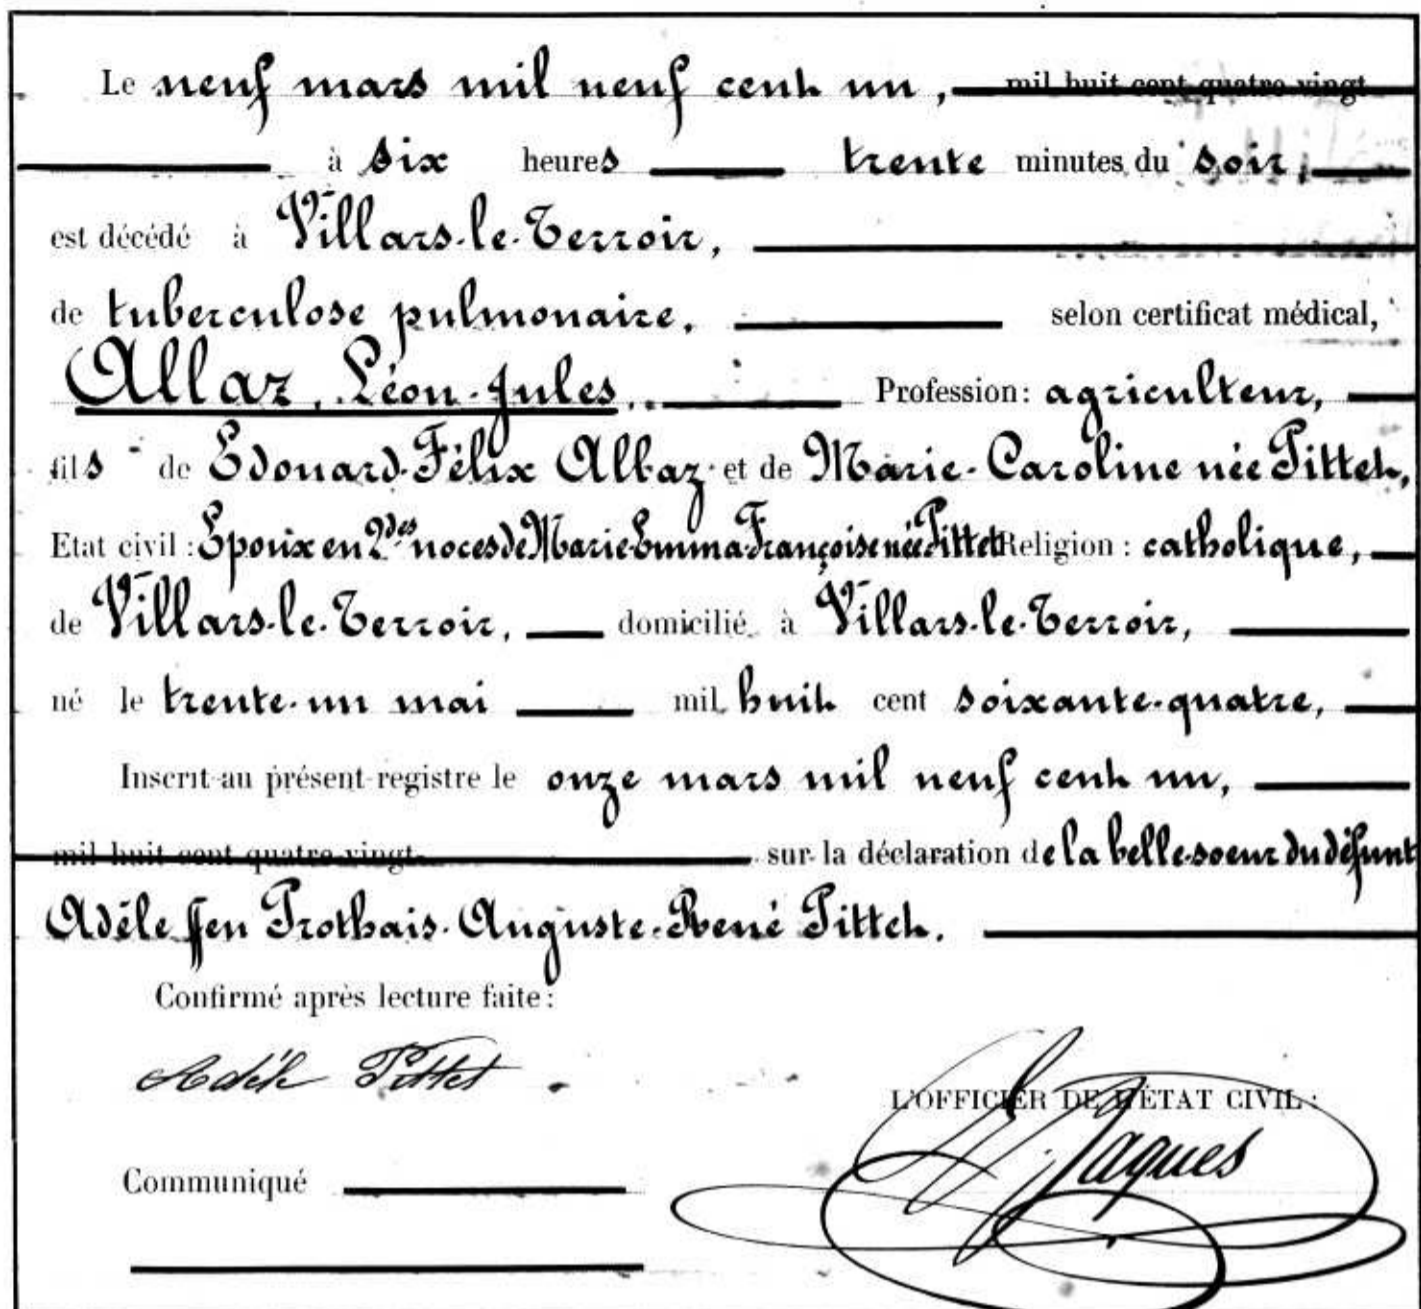 Le neuf mars mil neuf cent un, mil huit cent quatre vingt
à six heures trente minutes du soir,
est décédé à Villars-le-Terroir,
de tuberculose pulmonaire, selon certificat médical,
Allaz, Léon-Jules, Profession: agriculteur,
fils de Edouard-Félix Allaz et de Marie-Caroline née Pittet,
Etat civil: Epoux en 2des noces de Marie-Emma-Françoise née Pittet Religion: catholique,
de Villars-le-Terroir, domicilié à Villars-le-Terroir,
né le trente-un mai mil huit cent soixante-quatre,
Inscrit au présent registre le onze mars mil neuf cent un,
mil huit cent quatre-vingt sur la déclaration de la belle-soeur du défunt
Adèle ffeu Prothais-Auguste-René Pittet.
Confirmé après lecture faite:
Adèle Pittet
L'OFFICIER DE L'ÉTAT CIVIL:
Jaques
Communiqué